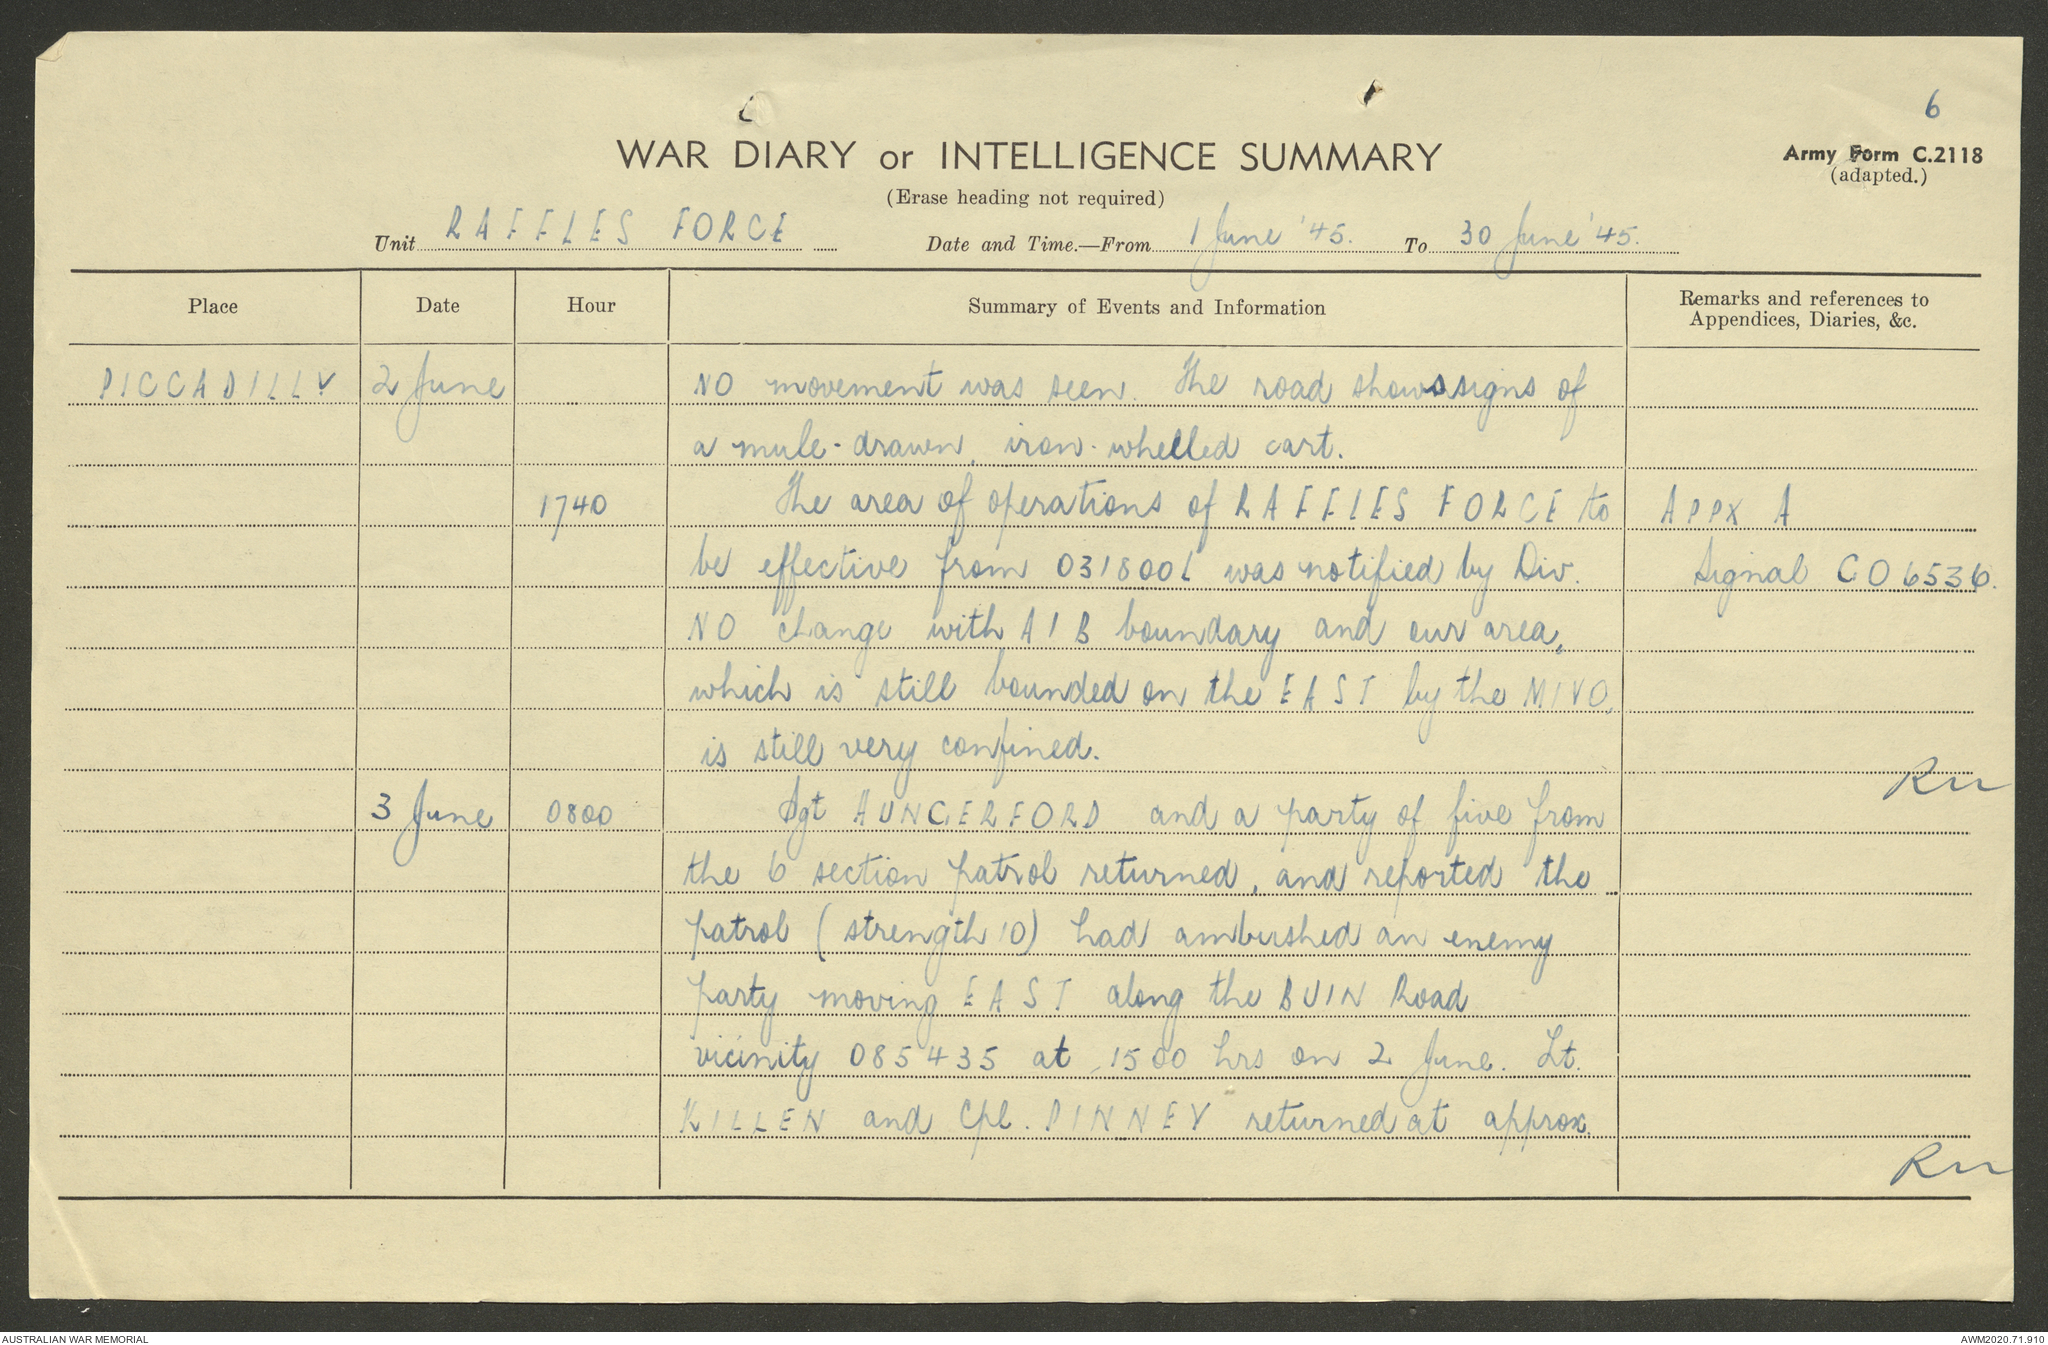 6
WAR DIARY or INTELLIGENCE SUMMARY
Army Form C.2118
(adapted.)
(Erase heading not required)
Unit RAFFLES FORCE Date and Time.—From 1 June '45. To 30 June '45.
Place Date Hour Summary of Events and Information Remarks and references to
Appendices, Diaries, &c.
PICCADILLY 2 June NO movement was seen. The road shows signs of
a mule-drawn, iron-whelled cart.
1740 The area of operations of RAFFLES FORCE to APPX A
be effective from 031800L was notified by Div. Signal CO6536.
NO change with AIB boundary and our area,
which is still bounded on the EAST by the MIVO,
is still very confined.
3 June 0800 Sgt HUNGERFORD and a party of five from
the 6 section patrol returned, and reported the
patrol (strength 10) had ambushed an enemy
party moving EAST along the BUIN Road
vicinity 085435 at 1500 hrs on 2 June. Lt.
KILLEN and Cpl. PINNEY returned at approx.
AUSTRALIAN WAR MEMORIAL
AWM2020.71.910